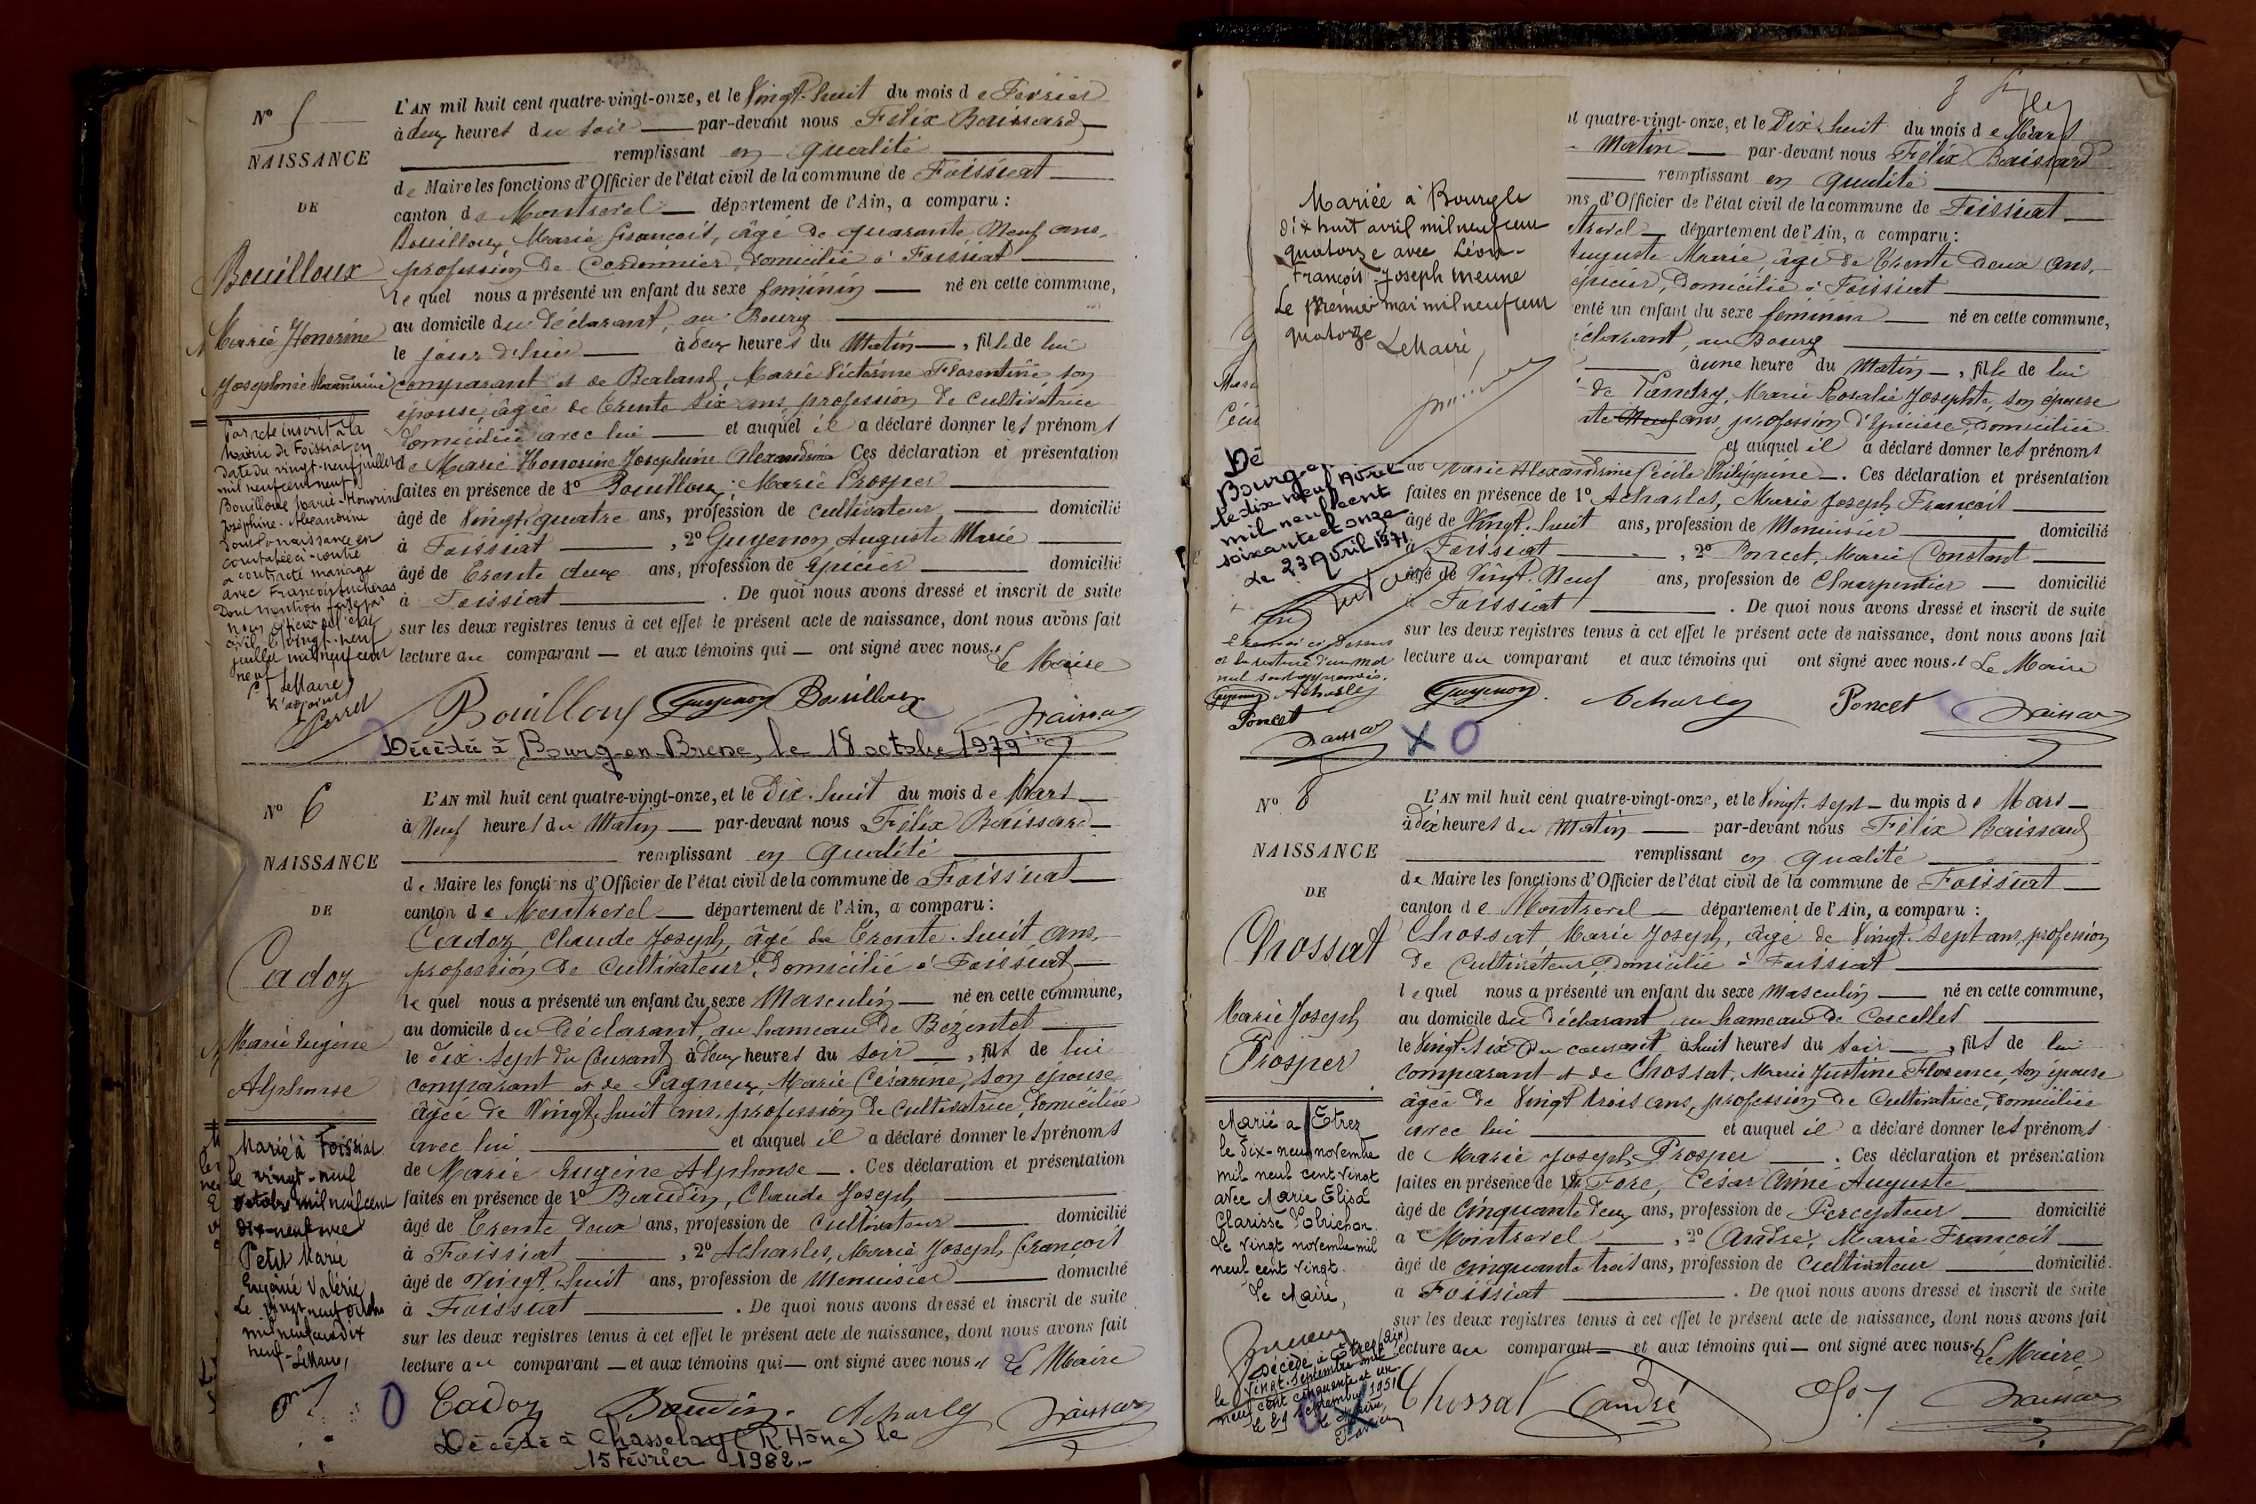 N° 5
NAISSANCE
DE
Bouilloux
Marie Honorine
Josephine Alexandrine
Par acte inscrit à la
Mairie de Foissiat en
date du vingt-neuf juillet
mil neuf cent neuf
Bouilloux Marie-Honorine
Joséphine-Alexandrine
dont la naissance est
constatée ci-contre
a contracté mariage
avec François
Dont mention faite par
nous officier de l'état
civil le vingt-neuf
juillet mil neuf cent
neuf
Le Maire
L'AN mil huit cent quatre-vingt-onze, et le Vingt-huit du mois de Février
à deux heures du soir par-devant nous Félix Baissard
remplissant en qualité
de Maire les fonctions d'Officier de l'état civil de la commune de Foissiat
canton de Montrevel département de l'Ain, a comparu :
Bouilloux, Marie François, âgé de quarante Neuf ans,
profession de Cordonnier, domicilié à Foissiat
lequel nous a présenté un enfant du sexe féminin né en cette commune,
au domicile du déclarant, au Bourg
le jour d'hier à deux heures du Matin, fille de lui
comparant et de Béaland, Marie Victorine Florentine son
épouse, âgée de trente six ans, profession de cultivatrice
domiciliée avec lui et auquel il a déclaré donner les prénoms
de Marie Honorine Josephine Alexandrine Ces déclaration et présentation
faites en présence de 1° Bouilloux, Marie Prosper
âgé de Vingt quatre ans, profession de cultivateur domicilié
à Foissiat, 2° Guyenon, Auguste Marie
âgé de Trente deux ans, profession de épicier domicilié
à Foissiat. De quoi nous avons dressé et inscrit de suite
sur les deux registres tenus à cet effet le présent acte de naissance, dont nous avons fait
lecture au comparant et aux témoins qui ont signé avec nous. Le Maire
Bouilloux Guyenon Bouilloux
Décédée à Bourg-en-Bresse, le 18 octobre 1979
N° 6
NAISSANCE
DE
Cadoz
Marie Eugène
Alphonse
Marié à Foissiat
le vingt-neuf
octobre mil neuf cent
dix-neuf avec
Petit Marie
Eugénie Valérie
Le vingt neuf octobre
mil neuf cent dix
neuf - Le Maire,
L'AN mil huit cent quatre-vingt-onze, et le Dix-huit du mois de Mars
à Neuf heures du Matin par-devant nous Félix Baissard
remplissant en qualité
de Maire les fonctions d'Officier de l'état civil de la commune de Foissiat
canton de Montrevel département de l'Ain, a comparu :
Cadoz Claude Joseph, âgé de Trente-huit ans,
profession de Cultivateur, domicilié à Foissiat
lequel nous a présenté un enfant du sexe Masculin né en cette commune,
au domicile du Déclarant, au hameau de Bézentet
le dix-sept du Courant à deux heures du soir, fils de lui
comparant et de Pagneux, Marie Césarine, son épouse
âgée de Vingt-huit ans, profession de cultivatrice, domiciliée
avec lui et auquel il a déclaré donner les prénoms
de Marie Eugène Alphonse. Ces déclaration et présentation
faites en présence de 1° Beaudin, Claude Joseph
âgé de Trente deux ans, profession de cultivateur domicilié
à Foissiat, 2° Acharles, Marie Joseph François
âgé de Vingt-huit ans, profession de Menuisier domicilié
à Foissiat. De quoi nous avons dressé et inscrit de suite
sur les deux registres tenus à cet effet le présent acte de naissance, dont nous avons fait
lecture au comparant et aux témoins qui ont signé avec nous et Le Maire
Cadoz Baudin Acharles
Décédé à Chasselay (Rhône) le
15 Février 1982.-
Mariée à Bourg le
dix huit avril mil neuf cent
quatorze avec Léon-
François-Joseph Meune
Le premier mai mil neuf cent
quatorze Le Maire,
Dé
Bourg
le dix neuf Avril
mil neuf cent
soixante et onze
Le 23 Avril 1971
et la rature d'un mot
nul sont approuvés.
Guyenon Acharles
Poncet
nt quatre-vingt-onze, et le Dix-huit du mois de Mars
Matin par-devant nous Félix Baissard
remplissant en qualité
ons d'Officier de l'état civil de la commune de Foissiat
trevel département de l'Ain, a comparu :
Auguste Marie, âgé de Trente deux ans,
épicier, domicilié à Foissiat
enté un enfant du sexe féminin né en cette commune,
éclarant, au Bourg
à une heure du Matin, fille de lui
de Vandry, Marie Rosalie Josephte, son épouse
nte Neuf ans, profession d'épicière, domiciliée
et auquel il a déclaré donner les prénoms
de Marie Alexandrine Cécile Philippine. Ces déclaration et présentation
faites en présence de 1° Acharles, Marie Joseph François
âgé de Vingt-huit ans, profession de Menuisier domicilié
à Foissiat, 2° Poncet, Marie Constant
âgé de Vingt-Neuf ans, profession de Charpentier domicilié
à Foissiat. De quoi nous avons dressé et inscrit de suite
sur les deux registres tenus à cet effet le présent acte de naissance, dont nous avons fait
lecture au comparant et aux témoins qui ont signé avec nous et Le Maire
Guyenon. Acharles Poncet
N° 8
NAISSANCE
DE
Chossat
Marie Joseph
Prosper
Marié à Etrez
le dix-neuf novembre
mil neuf cent vingt
avec Marie Elisa
Clarisse
Le vingt novembre mil
neuf cent vingt.
Le Maire,
Décédé à Etrez (Ain)
le vingt-septembre mil
neuf cent cinquante et un
le 21 septembre 1951
Le Maire,
L'AN mil huit cent quatre-vingt-onze, et le Vingt-sept du mois de Mars
à dix heures du Matin par-devant nous Félix Baissard
remplissant en qualité
de Maire les fonctions d'Officier de l'état civil de la commune de Foissiat
canton de Montrevel département de l'Ain, a comparu :
Chossat, Marie Joseph, âgé de Vingt-sept ans, profession
de Cultivateur, domicilié à Foissiat
lequel nous a présenté un enfant du sexe Masculin né en cette commune,
au domicile du déclarant au hameau de Corcelles
le Vingt-six du courant à huit heures du soir, fils de lui
comparant et de Chossat, Marie Justine Florence, son épouse
âgée de Vingt trois ans, profession de Cultivatrice, domiciliée
avec lui et auquel il a déclaré donner les prénoms
de Marie Joseph Prosper. Ces déclaration et présentation
faites en présence de 1° Fore, César Aimé Auguste
âgé de Cinquante deux ans, profession de Percepteur domicilié
à Montrevel, 2° André, Marie François
âgé de cinquante trois ans, profession de cultivateur domicilié
à Foissiat. De quoi nous avons dressé et inscrit de suite
sur les deux registres tenus à cet effet le présent acte de naissance, dont nous avons fait
lecture au comparant et aux témoins qui ont signé avec nous et Le Maire
Chossat André